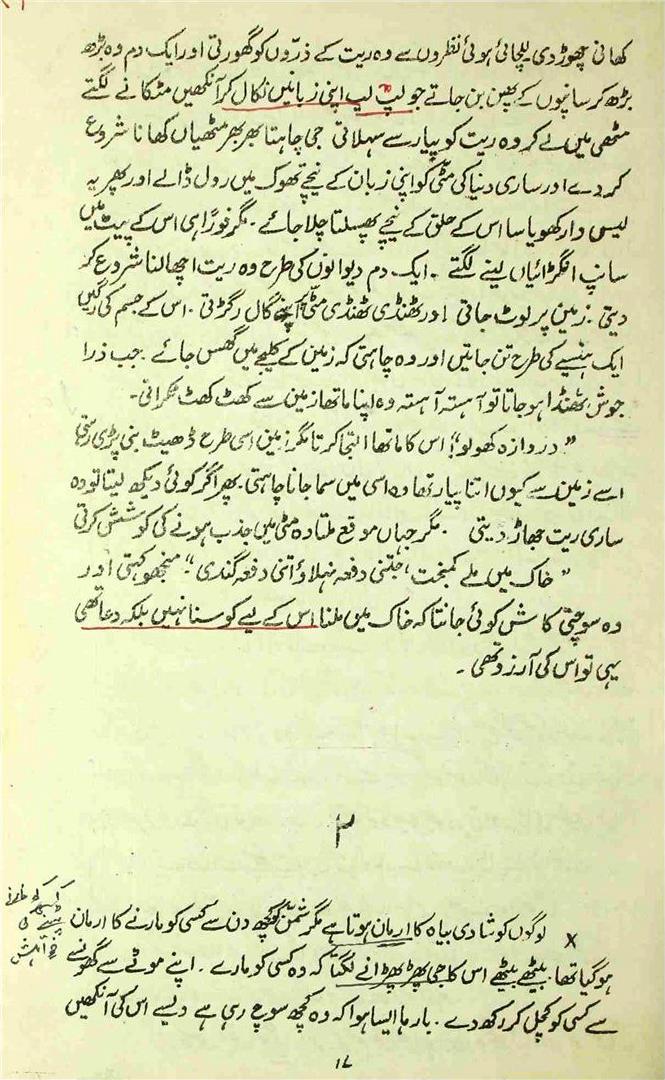 کھانی چھوڑ دی للچائی ہوئی نظروں سے وہ ریت کے ذرّوں کو گھورتی اور ایک دم وہ بڑھ
بڑھ کر سانپوں کے پھن بن جاتے جو لپ لپ اپنی زبانیں نکال کر آنکھیں مٹکانے لگتے
مٹھی میں لے کر وہ ریت کو پیار سے سہلاتی جی چاہتا بھر بھر مٹھیاں کھانا شروع
کر دے اور ساری دنیا کی مٹی کو اپنی زبان کے نیچے تھوک میں رول ڈالے اور پھر یہ
لیس دار کھویا سا اس کے حلق کے نیچے پھسلتا چلا جائے۔ مگر فوراً ہی اس کے پیٹ میں
سانپ انگڑائیاں لینے لگتے۔ ایک دم دیوانوں کی طرح وہ ریت اچھالنا شروع کر
دیتی۔ زمین پر لوٹ جاتی اور ٹھنڈی ٹھنڈی مٹی اپنے گال رگڑتی۔ اس کے جسم کی رگیں
ایک ہنسیے کی طرح تن جاتیں اور وہ چاہتی کہ زمین کے کلیجے میں گھس جائے۔ جب ذرا
جوش ٹھنڈا ہو جاتا تو آہستہ آہستہ وہ اپنا ماتھا زمین سے کھٹ کھٹ ٹکراتی۔
”دروازہ کھولو“! اس کا ماتھا التجا کرتا مگر زمین اسی طرح ڈھیٹ بنی پڑی رہتی
اسے زمین سے کیوں اتنا پیار تھا وہ اسی میں سما جانا چاہتی۔ پھر اگر کوئی دیکھ لیتا تو وہ
ساری ریت جھاڑ دیتی۔ مگر جہاں موقع ملتا وہ مٹی میں جذب ہونے کی کوشش کرتی
”خاک میں ملے کمبخت، جتنی دفعہ نہلاؤ اتنی دفعہ گندی“۔ منجھو کہتی اور
وہ سوچتی کاش کوئی جانتا کہ خاک میں ملنا اس کے لیے کوسنا نہیں بلکہ دعا تھی
یہی تو اس کی آرزو تھی۔
۲
لوگوں کو شادی بیاہ کا ارمان ہوتا ہے مگر شمن کو کچھ دن سے کسی کو مارنے کا ارمان
ہو گیا تھا۔ بیٹھے بیٹھے اس کا جی پھڑپھڑانے لگتا کہ وہ کسی کو مارے۔ اپنے موٹے سے گھونسے
سے کسی کو کچل کر رکھ دے۔ بارہا ایسا ہوا کہ وہ کچھ سوچ رہی ہے ویسے اس کی آنکھیں
۱۷